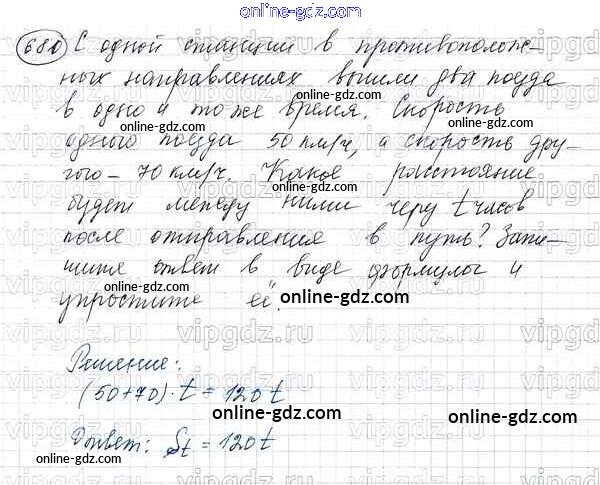 online-gdz.com
680 С одной станции в противополож-
ных направлениях вышли два поезда
в одно и то же время. Скорость
online-gdz.com
одного поезда 50 км/ч, а скорость дру-
гого – 70 км/ч. Какое расстояние
online-gdz.com
будет между ними через t часов
online-gdz.com
после отправления в путь? Запи-
шите ответ в виде формулы и
упростите её.
online-gdz.com
Решение:
(50+70)·t = 120t
online-gdz.com
Ответ: St = 120t
online-gdz.com